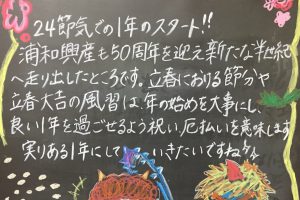 24節気での1年のスタート!!
浦和興産も50周年を迎え新たな半世紀
へ走り出したところです。立春における節分や
立春大吉の風習は、年の始めを大事にし、
良い1年を過ごせるよう祝い、厄払いを意味します
実りある1年にして いきたいですね